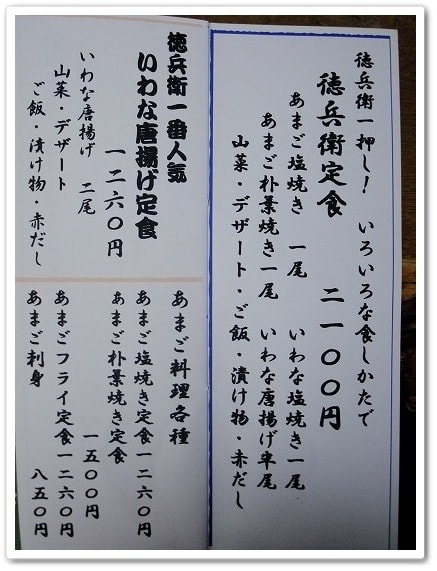 徳兵衛一押し！ いろいろな食しかたで
徳兵衛定食 二一〇〇円
あまご塩焼き 一尾 いわな塩焼き一尾
あまご朴葉焼き一尾 いわな唐揚げ半尾
山菜・デザート・ご飯・漬け物・赤だし
徳兵衛一番人気
いわな唐揚げ定食
一二六〇円
いわな唐揚げ 二尾
山菜・デザート
ご飯・漬け物・赤だし
あまご料理各種
あまご塩焼き定食一二六〇円
あまご朴葉焼き定食
一五〇〇円
あまごフライ定食一二六〇円
あまご刺身 八五〇円